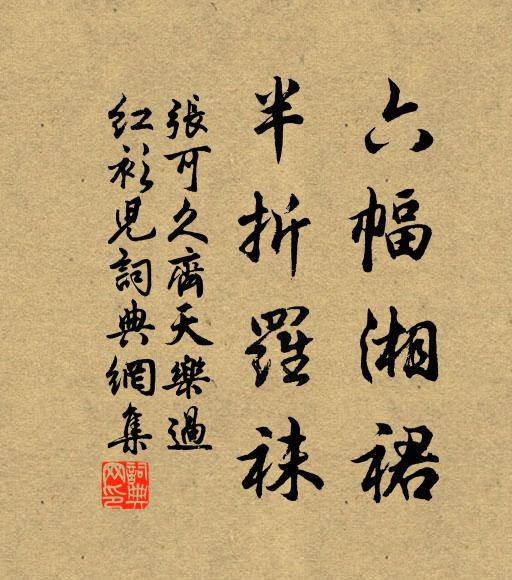 六幅湘裙
半折羅袜
張可久齊天樂過
紅衫兒詞典網集
詞典網印